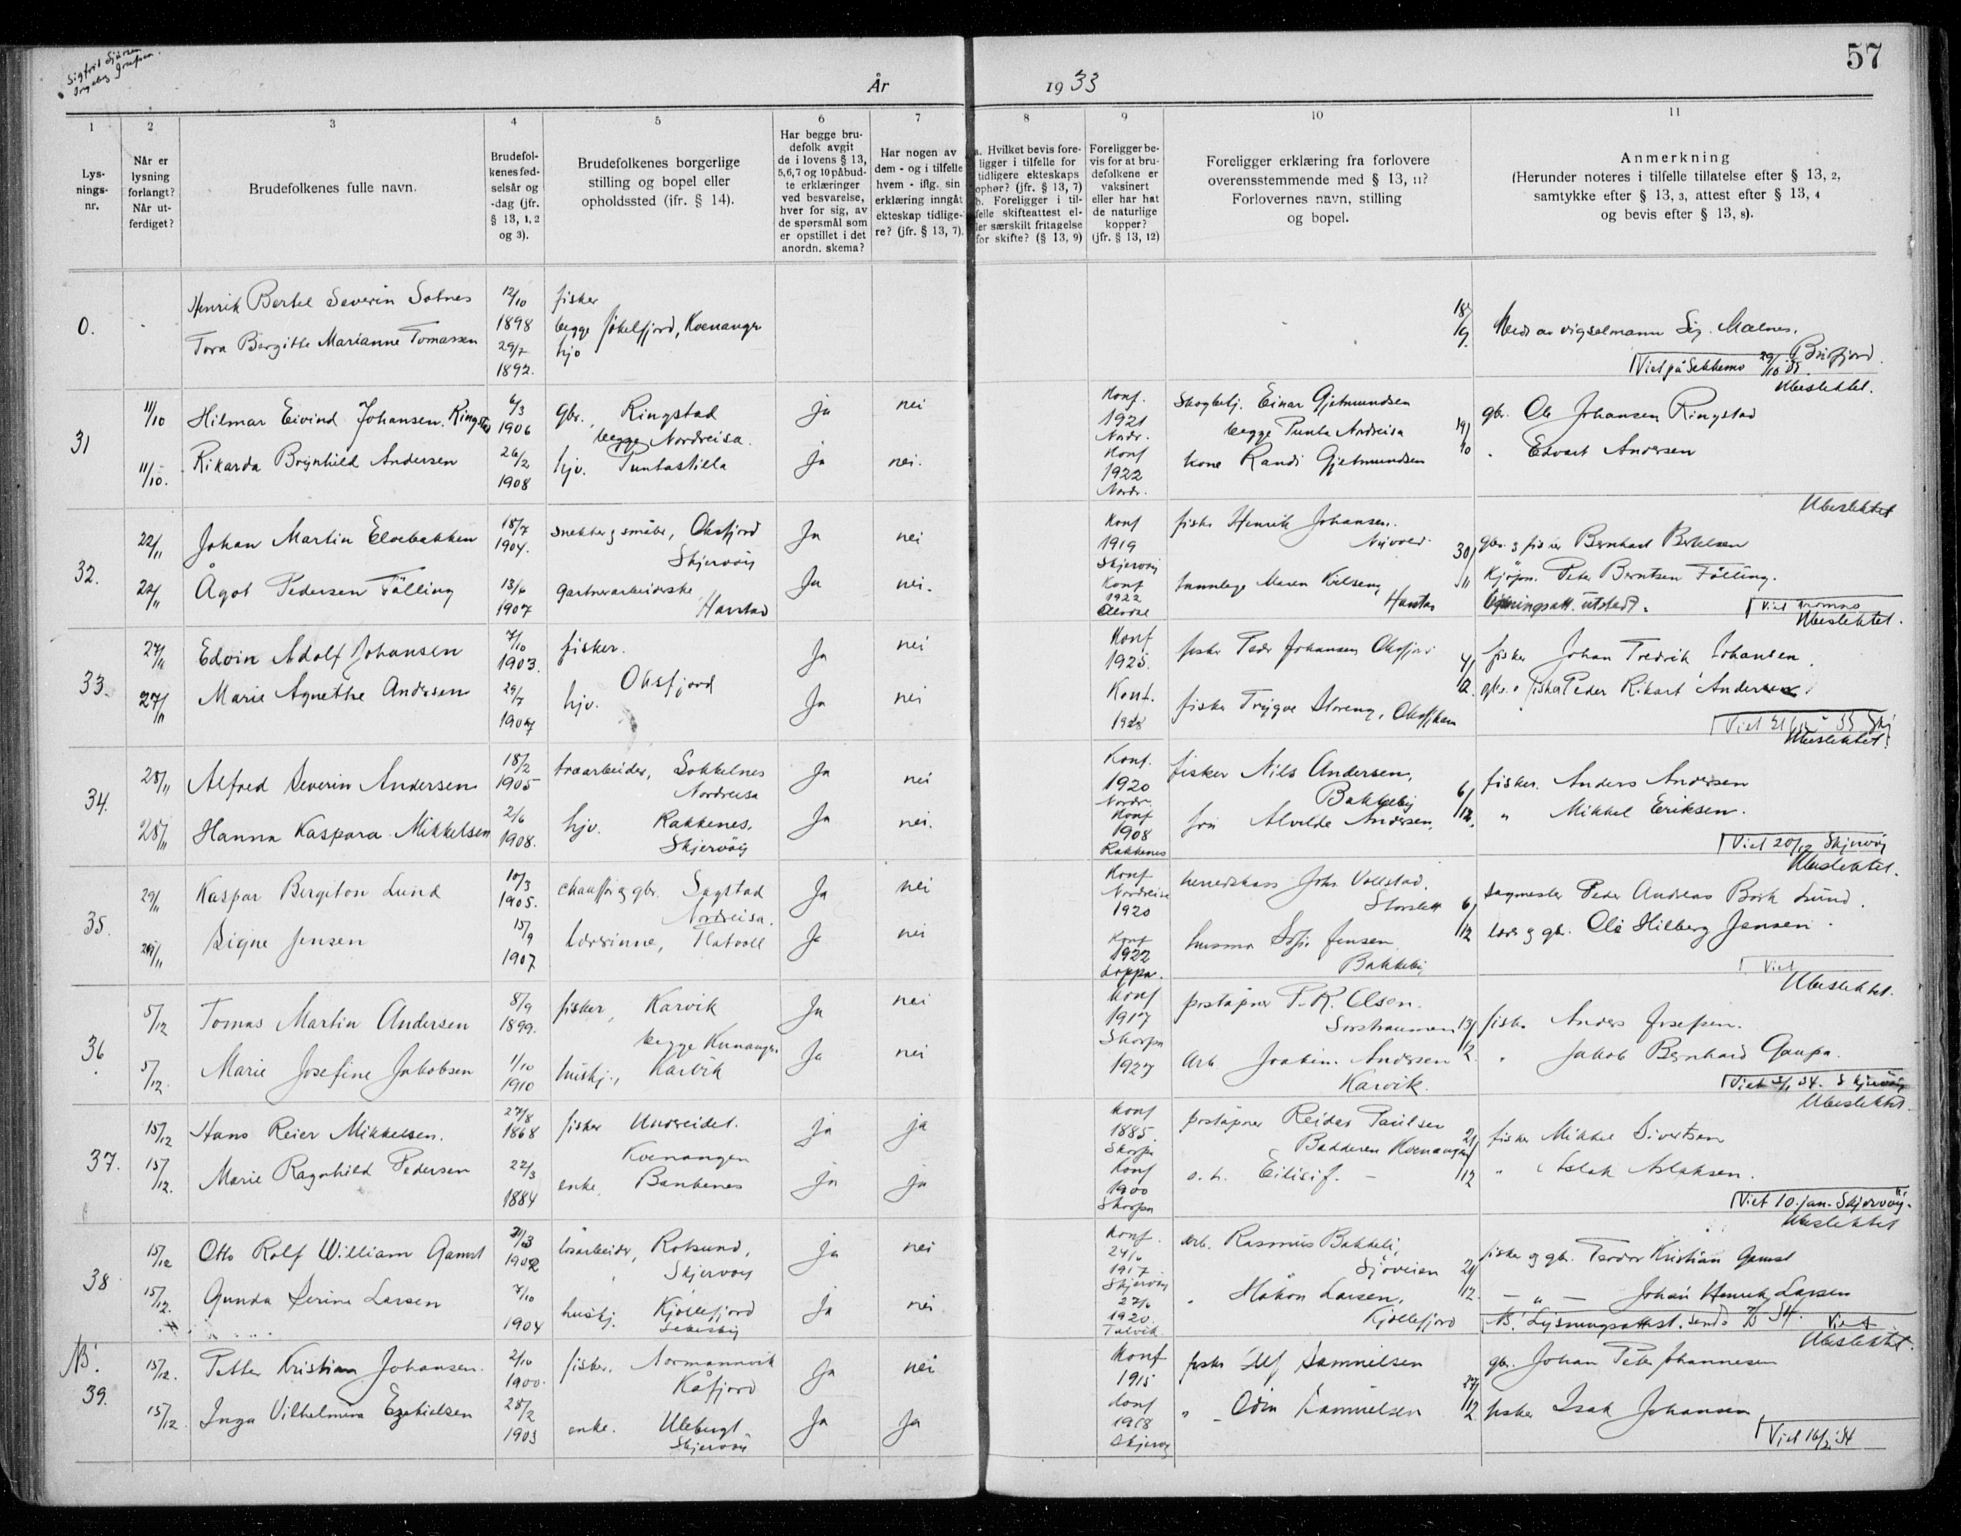 57
År 1933
1 2 3 4 5 6 7 8 9 10 11
Lys-
nings-
nr.
Når er
lysning
forlangt?
Når ut-
ferdiget?
Brudefolkenes fulle navn.
Brudefol-
kenes fød-
selsår og
-dag (jfr.
§ 13, 1, 2
og 3).
Brudefolkenes borgerlige
stilling og bopel eller
opholdssted (ifr. § 14).
Har begge bru-
defolk avgit
de i lovens § 13,
5,6,7 og 10 påbud-
te erklæringer
ved besvarelse,
hver for sig, av
de spørsmål som
er opstillet i det
anordn. skema?
Har nogen av
dem - og i tilfelle
hvem - iflg. sin
erklæring inngåt
ekteskap tidlige-
re? (jfr. § 13, 7).
a. Hvilket bevis fore-
ligger i tilfelle for
tidligere ekteskaps
ophør? (jfr. § 13, 7)
b. Foreligger i til-
felle skifteattest el-
ler særskilt fritagelse
for skifte? (§ 13, 9)
Foreligger be-
vis for at bru-
defolkene er
vaksinert
eller har hat
de naturlige
kopper?
(jfr. § 13, 12)
Foreligger erklæring fra forlovere
overensstemmende med § 13, 11?
Forlovernes navn, stilling
og bopel.
Anmerkning
(Herunder noteres i tilfelle tillatelse efter § 13, 2,
samtykke efter § 13, 3, attest efter § 13, 4
og bevis efter § 13, 8).
0.
Henrik Bertel Severin Solnes 12/10 1898 fisker
begge Jøkelfjord, Kvenangen
Tora Bergitte Marianne Tomassen 29/7 1892. hjv
18/9. Meds av vigselmann Sig. Malnes,
Burfjord.
Viet på Sekkemo 29/10 33.
Ubeslektet.
31
11/10 Hilmar Eivind Johansen Ringstad 6/3 1906 gbr., Ringstad ja nei Konf. 1921 Nordr. Skogbetj. Einar Gjetmundsen gbr. Ole Johansen Ringstad
begge Nordreisa. begge Punta Nordreisa 19/10
11/10. Rikarda Brynhild Andersen 26/2 1908 hjv. Puntastilla ja nei. Konf 1922 Nordr. kone Randi Gjetmundsen " Edvart Andersen
Ubeslektet
32.
22/11 Johan Martin Elvebakken 18/7 1904. snekker og småbr., Oksfjord Skjervøy Ja nei Konf 1919 Skjervøy fisker Henrik Johansen. Nyvoll. 30/11 gbr. & fisker Bernhart Bertelsen
22/11 Ågot Pedersen Fölling 13/6 1907 gartnerarbeiderske, Harstad Ja nei. Konf 1922 tannlege Maren Harstad Kjøpm. Peter Berntsen Fölling.
Lysningsatt. utstedt. Viet Tromsø
Ubeslektet.
33.
27/11 Edvin Adolf Johansen 7/10 1903. fisker. Ja nei Konf 1925. fisker Peder Johansen Oksfjord 4/12. fisker Johan Fredrik Johansen.
Oksfjord
27/11 Marie Agnethe Andersen 29/7 1904 hjv. Ja nei Konf. 1928 fisker Trygve Storeng, Oksfjham gbr. o fisker Peder Rikart Andersen
Viet 21/12 33 Skj
Ubeslektet.
34.
28/11 Alfred Severin Andersen 18/2 1905 træarbeider, Sokkelnes Nordreisa Ja nei Konf. 1920 Nordr. fisker Nils Andersen, Bakkeby 6/12. fisker. Anders Andersen
28/11 Hanna Kaspara Mikkelsen 2/6 1908. hjv. Rakkenes, Skjervöy Ja nei. Konf 1908 Rakkenes frú Alvilde Andersen, " Mikkel Eriksen.
Viet 20/12 Skjervöy
Ubeslektet.
35.
29/11 Kaspar Bergiton Lund 10/3 1905. chauffør og gbr. Sagstad Nordreisa. Ja nei Konf Nordreisa 1920 herredskass Johs Vollstad. Storslett 6/12 sagmester Peder Andreas Bork Lund.
29/11 Signe Jensen 15/9 1907 lærerinne, Flatvoll Ja nei Konf 1922 Loppa. husmor Sofie Jensen Bakkeby lærer og gbr. Ole Hilberg Jensen.
Viet
Ubeslektet.
36.
5/12 Tomas Martin Andersen 8/9 1899. fisker, Karvik Ja nei Konf 1917 Skorpa poståpner P. K. Olsen. Sørstraumen 13/12. fisker Anders Josefsen.
begge Kvenangen
5/12. Marie Josefine Jakobsen 1/10 1910 hushj., Karvik Ja nei 1927 arb Joakim Andersen Karvik. " Jakob Bernhard Gaupa.
Viet 3/1 34. Skjervöy
Ubeslektet.
37.
15/12 Hans Reier Mikkelsen. 27/8 1868 fisker Undereidet. ja ja Konf 1885. Skorpa poståpner Reidar Paulsen 21/12 fisker Mikkel Sivertsen
Kvenangen Badderen Kvenangen
15/12. Marie Ragnhild Pedersen 22/3 1884 enke, Bankenes ja ja Konf 1900 Skorpa s. h. Eilisif. — " Aslak Aslaksen.
Viet 10. jan. Skjervöy.
Ubeslektet
38
15/12 Otto Rolf William Gamst 21/3 1902 løsarbeider, Rotsund, Skjervøy ja nei Konf. 24/6 1917. Skjervøy arb. Rasmus Bakkeli, Sjøveien 21/12. fisker og gbr. Teodor Kristian Gamst
15/12. Gunda Serine Larsen 7/10 1904 hushj. Kjøllefjord Lebesby ja nei 27/6 1920. Talvik " Håkon Larsen, Kjøllefjord — " — Johan Henrik Larsen
NB. Lysningsattest. sendt Viet
Ubeslektet.
NB!
39.
15/12. Petter Kristian Johansen. 2/10 1900. fisker. Normannvik Kåfjord Ja nei Konf 1915 fisker Ulf Samuelsen 27/12 gbr. Johan Peter Johannesen
15/12. Inga Vilhelmine Ezekielsen 28/2 1903 enke. Uløbugt. Skjervøy Ja Ja Konf 1918 Skjervøy " Odin Samuelsen fisker Isak Johansen
Viet 16/2 34